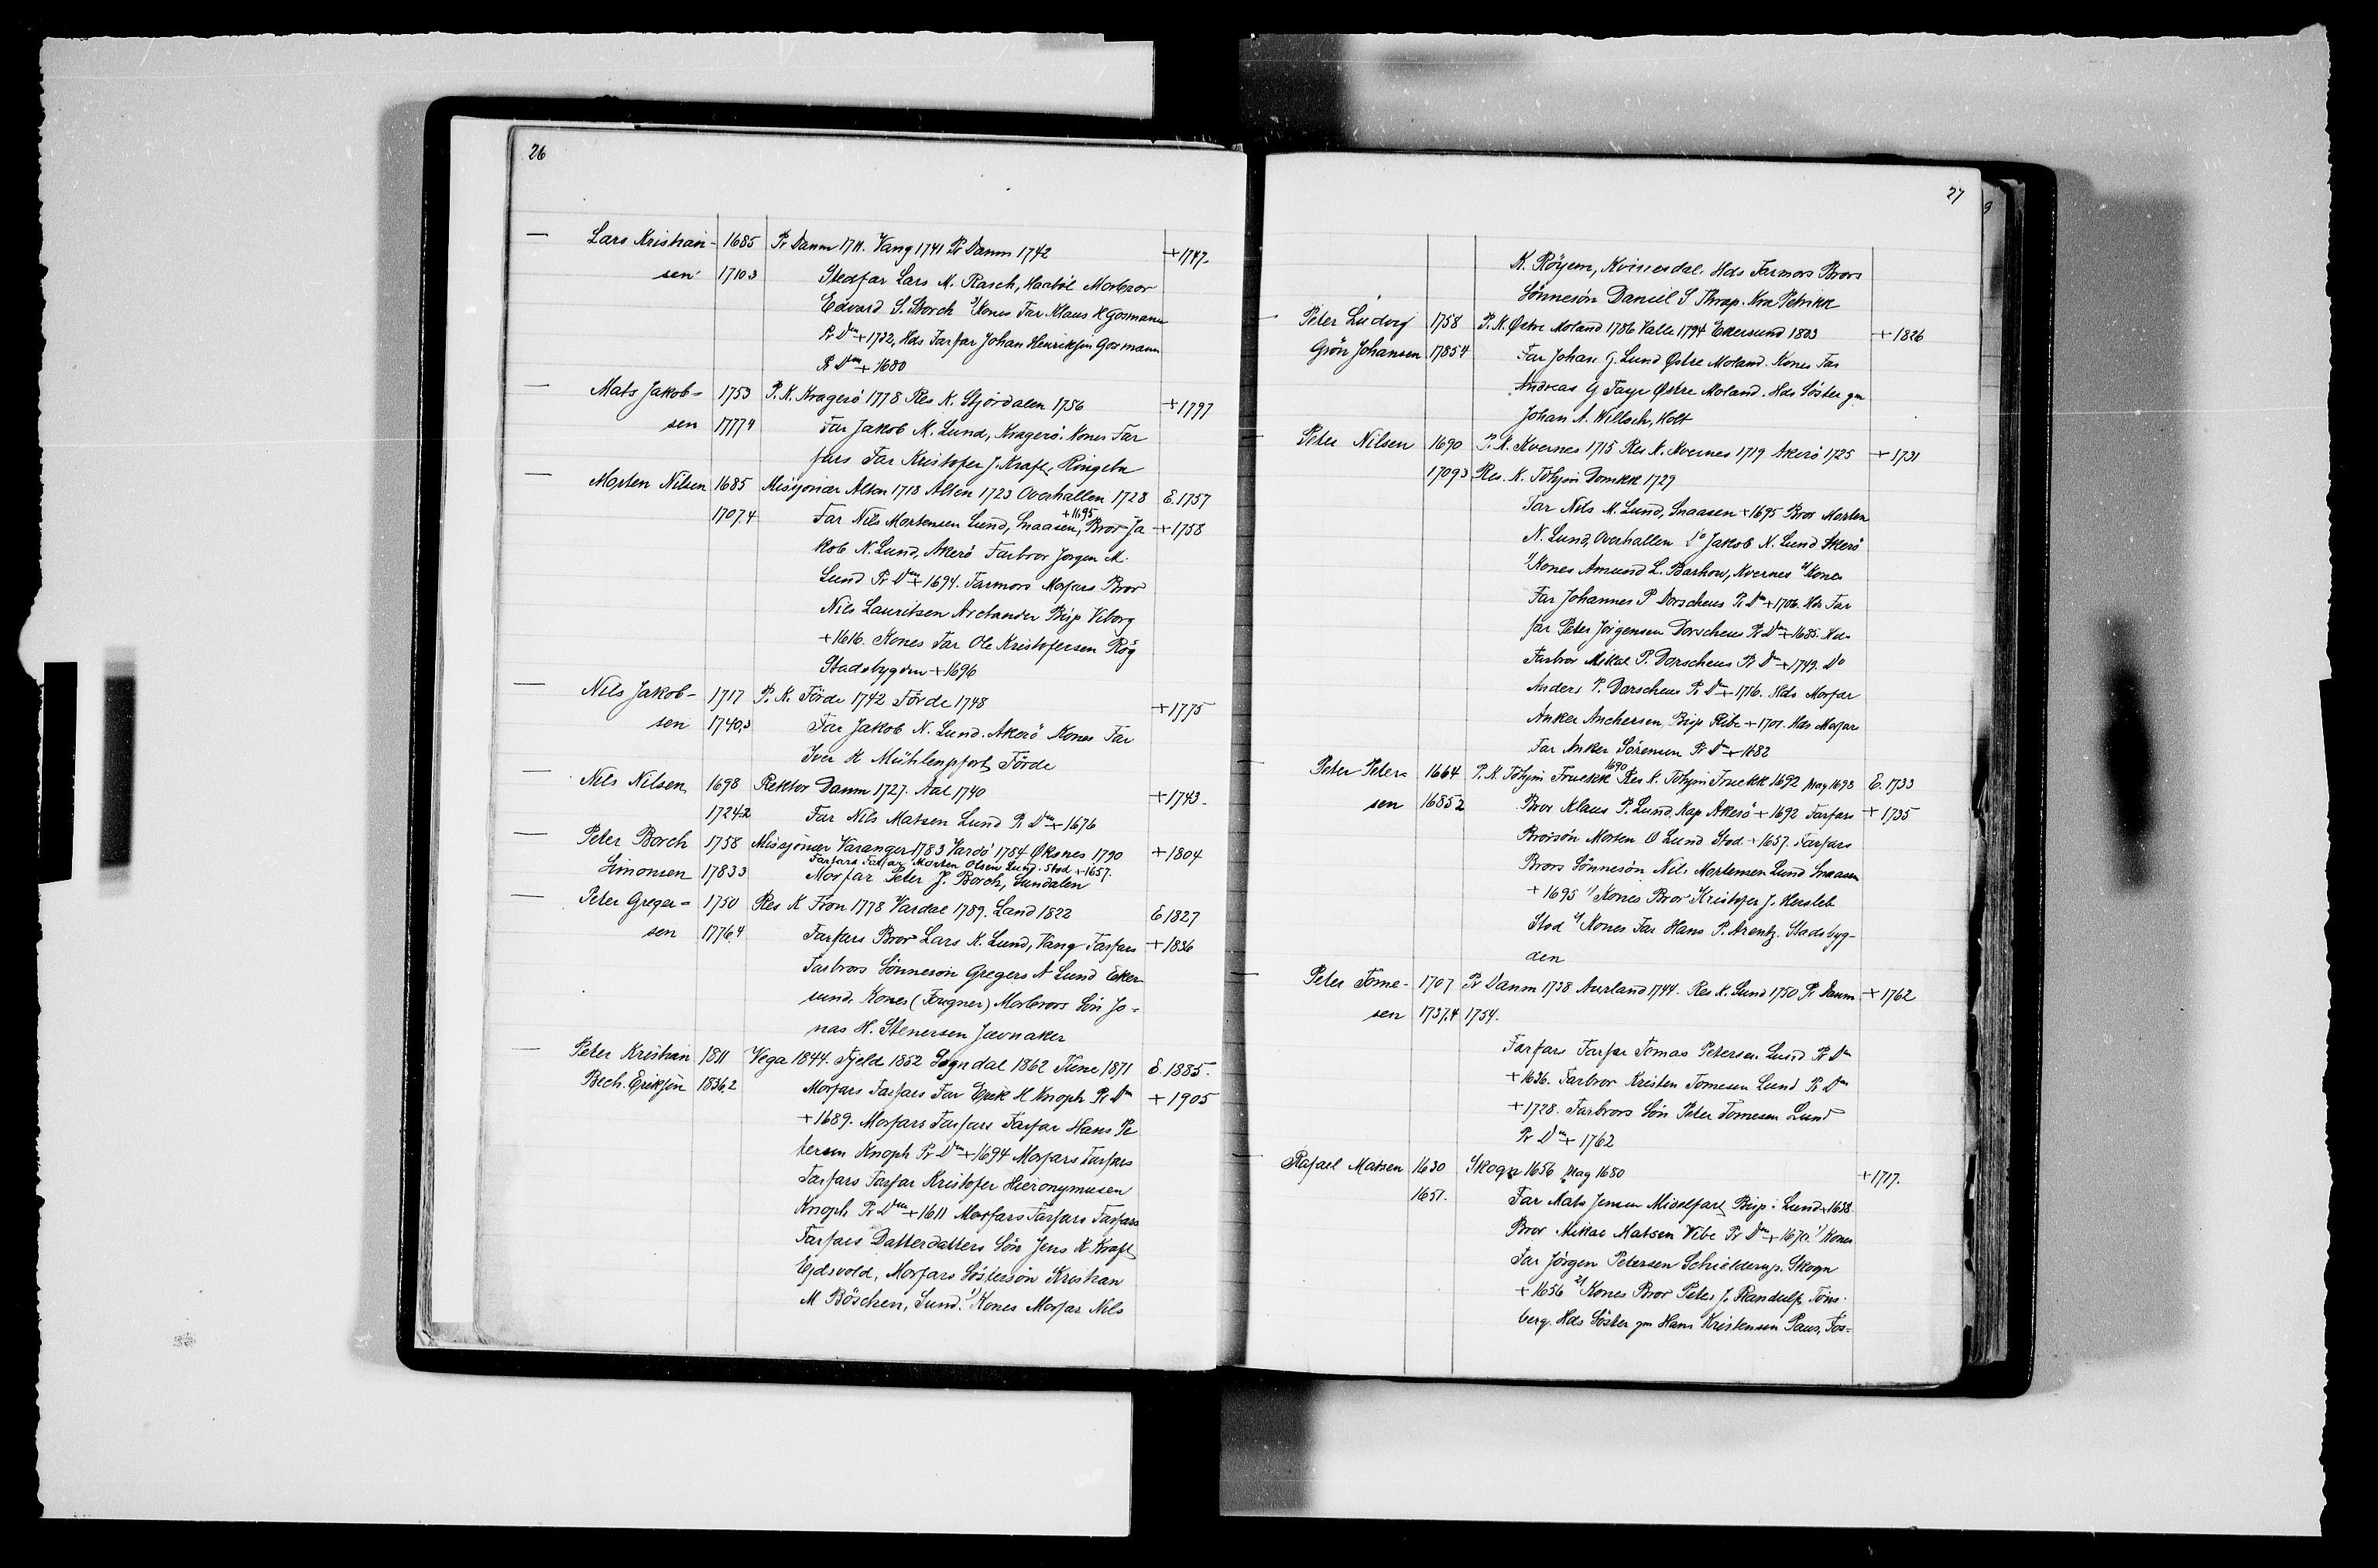 26
— Lars Kristian- 1685 Pr Danm 1711. Vang 1741 Pr Danm 1742 +1747.
sen 1710.3 Stedfar Lars M. Rasch, Haabøl Morbror
Edvard S. Storch 2/ Kones Far Klaus H Gosmann
Pr Dm + 1732, Hds Farfar Johan Henriksen Gosmann
Pr Dm + 1680
— Mats Jakob- 1753 P. K. Kragerö 1778 Res K. Stjördalen 1756 +1797
sen 1777.4 Far Jakob M. Lund, Kragerö. Kones Far
fars Far Kristofer J. Kraft, Ringebu
— Morten Nilsen 1685 Missjonær Alten 1718 Alten 1723 Overhallen 1728 E. 1757
1707.4 Far Nils Mortensen Lund, Snaasen, +1695 Bror Ja +1758
kob N. Lund, Akerö Farbror Jörgen M.
Lund Pr Dm + 1694. Farmors Morfars Bror
Nils Lauritsen Arctander Bisp Viborg
+ 1616. Kones Far Ole Kristofersen Røg
Stadsbygden + 1696
— Nils Jakob- 1717 P. K. Förde 1742 Förde 1748 +1775
sen 1740.3 Far Jakob N. Lund. Akerö Kones Far
Iver H Mühlenpfort, Förde
— Nils Nilsen 1698 Rektor Danm 1727. Aal 1740 +1743.
1724.2 Far Nils Matsen Lund Pr Dm + 1676
— Peter Borch 1758 Missjonær Varanger 1783 Vardö 1784 Øksnes 1790 +1804
Farfars Farfar Morten Olsen Lund. Stod + 1657.
Simonsen 1783.3 Morfar Peter J. Borch, Sundalen
— Peter Greger- 1750 Res K Fron 1778 Vardal 1789. Land 1822 E 1827
sen 1776.4 Farfars Bror Lars K. Lund, Vang Farfars +1836
Farbrors Sönneson Gregers A Lund Eker
sund. Kones (Fougner) Morbrors Sön Jo-
nas H. Stenersen Jævnaker
— Peter Kristian 1811 Vega 1844. Fjeld 1852 Sogndal 1862 Tune 1871 E. 1885.
Bech. Eriksen 1836.2 Morfars Farfars Far Erik H Knoph Pr Dm +1905
+ 1689. Morfars Farfars Farfar Hans Pe
tersen Knoph Pr Dm + 1694 Morfars Farfars
Farfars Farfar Kristofer Hieronymusen
Knoph Pr Dm + 1611 Morfars Farfars Farfars
Farfars Datterdatters Sön Jens K Kraft
Ejdsvold, Morfars Söstersön Kristian
M Böschen, Lund. 1/ Kones Morfar Nils
27
K. Röyem, Kvinesdal. Hds Farmors Brors
Sönnesön Daniel S Thrap. Kra Petrikk
— Peter Ludvig 1758 P. K. Østre Moland 1786 Valle 1794 Ekersund 1803 +1826
Grön Johansen 1785.4 Far Johan G. Lund Østre Moland. Kones Far
Andreas G Faye Østre Moland. Hds Söster gm
Johan A. Willoch, Holt
— Peter Nilsen 1690 P. K. Kvernes 1715 Res K. Kvernes 1719 Akerö 1725 +1731
1709.3 Res. K. Tohjem Domkk 1729
Far Nils M. Lund, Snaasen + 1695 Bror Morten
N. Lund, Overhallen Do Jakob N. Lund Akerö
1/ Kones Amund L. Barhow, Kvernes 2/ Kones
Far Johannes P Dorscheus Pr Dm + 1706. Hds Far
far Peter Jörgensen Dorscheus Pr Dm + 1685. Hds
Farbror Mikal P. Dorscheus Pr Dm + 1749. Do
Anders P. Dorscheus Pr Dm + 1716. Hds Morfar
Anker Anchersen, Bisp Ribe + 1701. Hds Morfars
Far Anker Sörensen Pr Dm + 1682
Peter Peter- 1664 P. K. Tohjem Fruekk 1690 Res K. Tohjem Fruekk 1692 Mag 1693 E. 1733
sen 1685.2 Bror Klaus P. Lund, Kap Akerö + 1692 Farfars +1735
Brorsön Morten O Lund Stod + 1657. Farfars
Brors Sönnesön Nils Mortensen Lund Snaasen
+ 1695 1/ Kones Bror Kristofer J. Hersleb
Stod 2/ Kones Far Hans P. Arentz. Stadsbyg-
den
— Peter Tome- 1707 Pr Danm 1738 Aurland 1744. Res K. Lund 1750 Pr Danm +1762
sen 1737.4 1754.
Farfars Farfar Tomas Petersen Lund Pr Dm
+ 1636. Farbror Kristen Tomesen Lund Pr Dm
+ 1728. Farbrors Sön Peter Tomesen Lund
Pr Dm + 1762
— Rafael Matsen 1630 Skogn 1656 Mag 1680 +1717.
1651. Far Mats Jensen Midelfart, Bisp i Lund + 1638
Bror Mikal Matsen Vibe Pr Dm + 1670. 1/ Kones
Far Jörgen Petersen Schielderup. Skogn
+ 1656 2/ Kones Bror Peter J. Randulf, Töns-
berg. Hds Söster gm Hans Kristensen Paus, Fos-